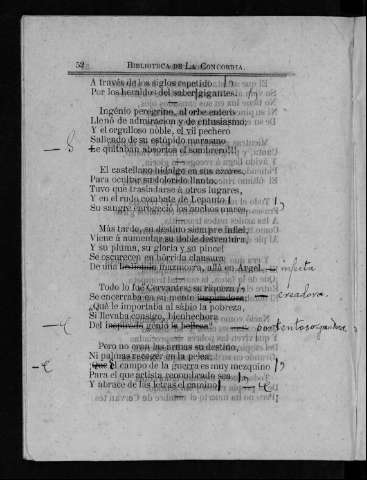 52 BIBLIOTECA DE LA CONCORDIA.
A través de los siglos repetido
Por los heraldos del saber gigantes.
Ingénio peregrino, al orbe entero
Llenó de admiracion y de entusiasmo;
Y el orgulloso noble, el vil pechero
Saliendo de su estúpido marasmo
Le quitaban absortos el sombrero!!!
El castellano hidalgo en sus azares
Para ocultar su dolorido llanto,
Tuvo que trasladarse á otros lugares,
Y en el rudo combate de Lepanto
Su sangre enrogeció los anchos mares.
Más tarde, su destino siempre infiel,
Viene á aumentar su doble desventura;
Y su pluma, su gloria y su pincel
Se oscurecen en hórrida clausura
De una mazmorra, allá en Argel. infecta
Todo lo fué Cervantes; su riqueza
Se encerraba en su mente inspiradora creadora.
¿Qué le importaba al sábio la pobreza,
Si llevaba consigo, bienhechora
Del inspirado génio la belleza?
Pero no eran las armas su destino,
Ni palmas recoger en la pelea;
Que el campo de la guerra es muy mezquino
Para el que artista renombrado sea
Y abrace de las letras el camino